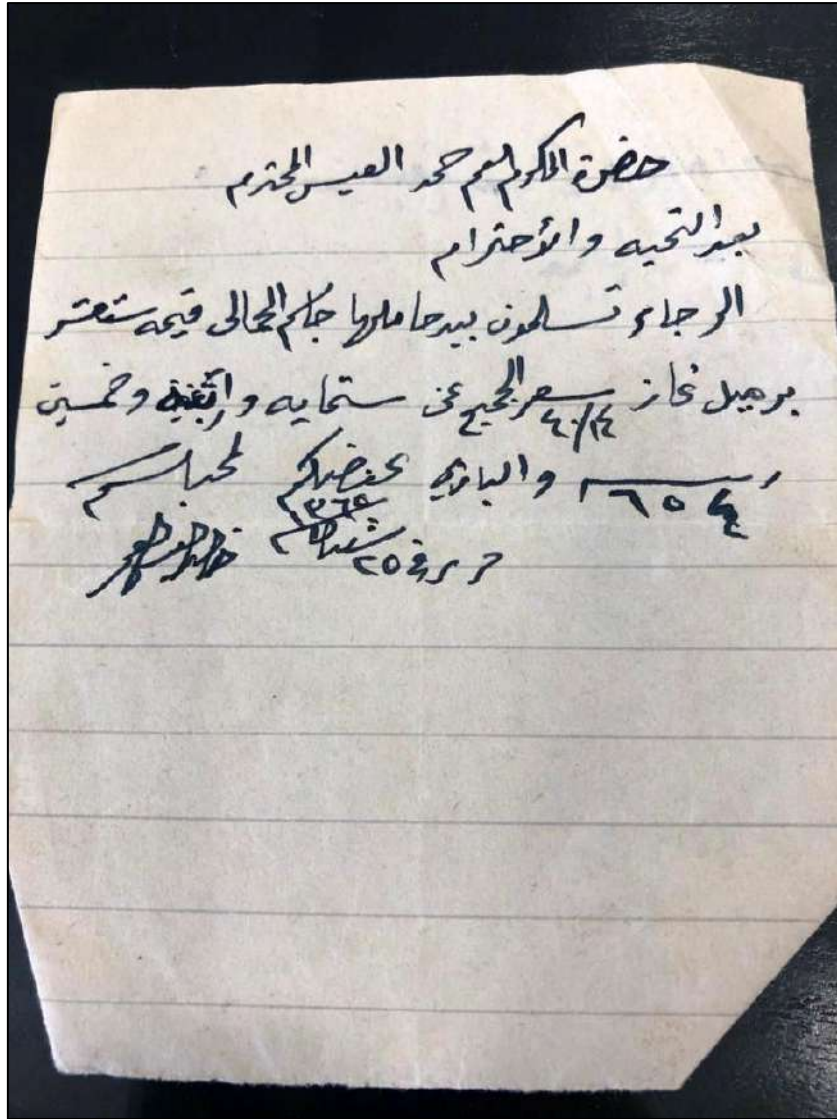 حضرة المكرم العم حمد العيسى المحترم
بعد التحيه والأحترام
الرجاء تسلمون بيد حاملها جاسم المحالى قيمه ستعشر
برميل غاز سعر الجميع عن ستمايه و وخمسين
٦٥٤ والباري يحفضكم لمحبكم
١٣٦٥
حرر في ٢٥ شعبان